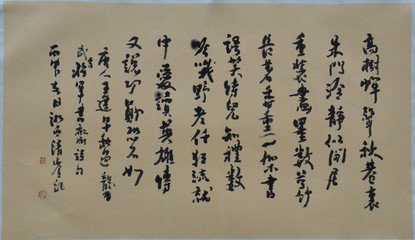 高樹蟬聲秋巷裏
朱門冷靜似閒居
重裝畫墨數莖竹
長著香薰一架書
語笑侍兒知禮數
吟哦野老任狂疏就
中愛讀英雄傳
又說功勳恐不如
唐人王建早秋過龍
武李將軍書齋詩句
春日